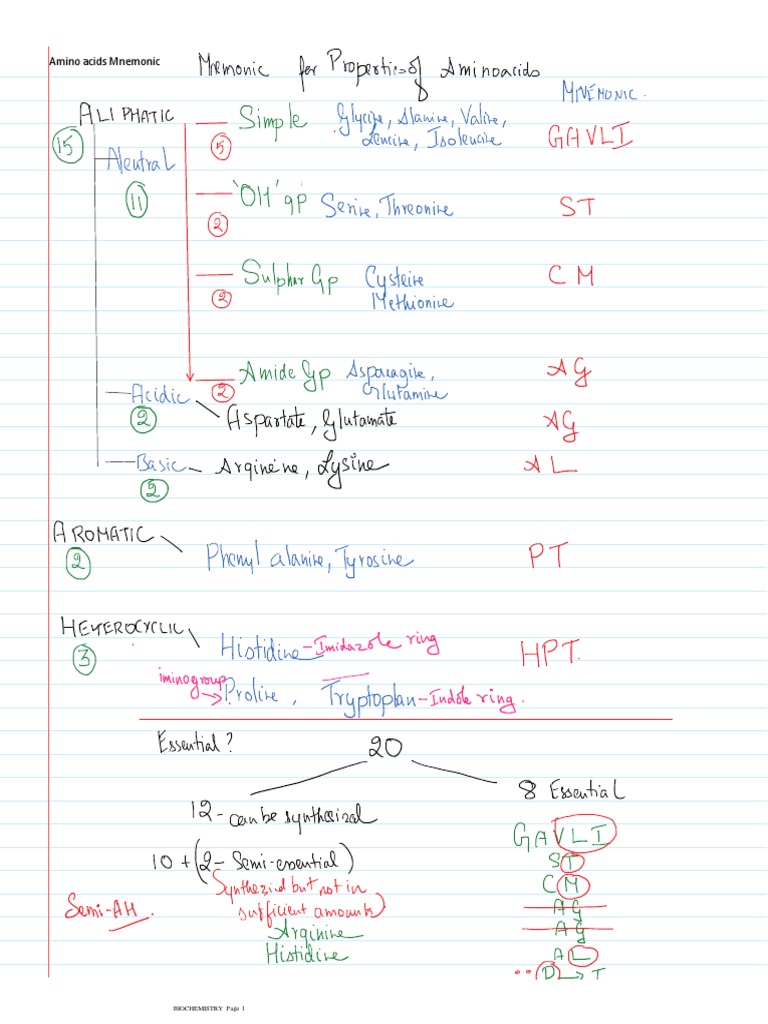 Amino acids Mnemonic
Mnemonic for Properties of Aminoacids
MNEMONIC.
ALIPHATIC
15
Simple
5
Glycine, Alanine, Valine,
Leucine, Isoleucine
GAVLI
Neutral
11
'OH' gp
2
Serine, Threonine
ST
Sulphur Gp
2
Cysteine
Methionine
CM
Amide Gp
2
Asparagine,
Glutamine
AG
Acidic
2
Aspartate, Glutamate
AG
Basic
2
Arginine, Lysine
AL
AROMATIC
2
Phenyl alanine, Tyrosine
PT
HETEROCYCLIC
3
Histidine - Imidazole ring
HPT.
iminogroup
Proline, Tryptophan - Indole ring.
Essential?
20
12 - can be synthesized
8 Essential
10 + (2 - Semi-essential)
(Synthesized but not in
sufficient amounts)
Semi-AH.
Arginine
Histidine
GAVLI
ST
CM
AG
AG
AL
P → T
BIOCHEMISTRY Page 1